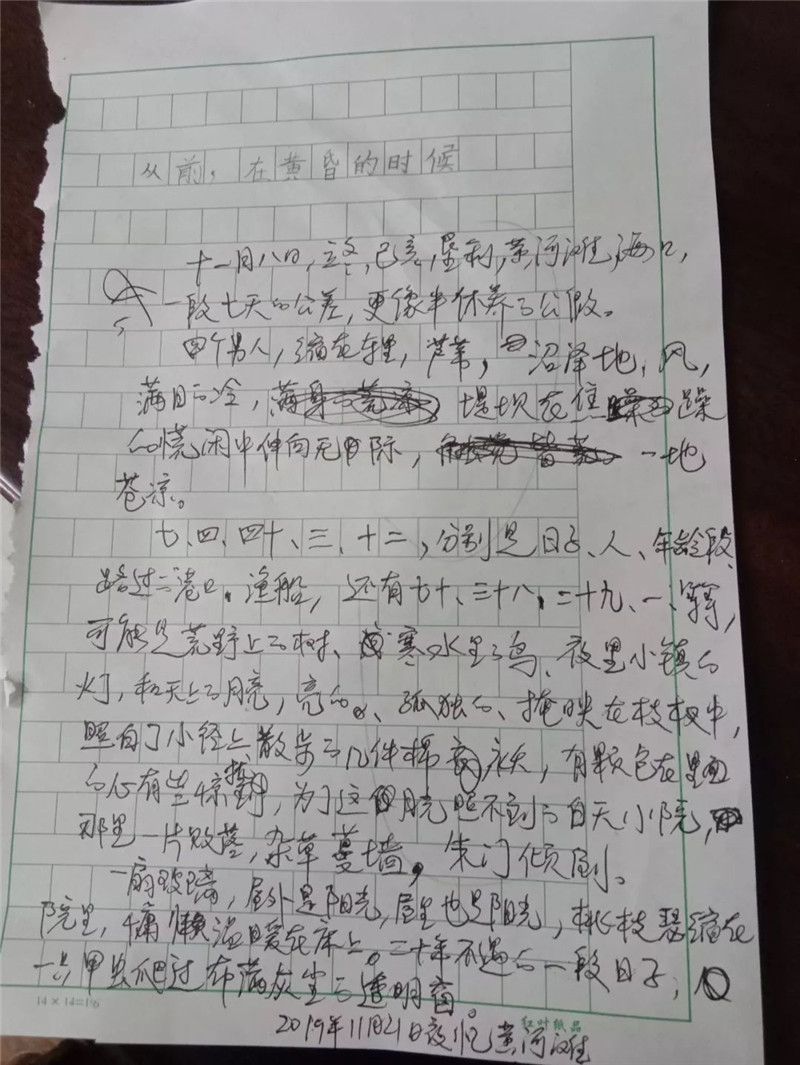 从前，在黄昏的时候
十一月八日，立冬，己亥，垦利，黄河滩，海口，
一段七天的公差，更像半休养的公假。
四个男人，缩在车里，芦苇，沼泽地，风，
满目的冷，堤坝在焦躁
的慌闲中伸向无际，一地
苍凉。
七、四、四十、三、十二，分别是日子、人、年龄段、
路过的港口，渔船，还有七十、三十八，二十九、一、等等，
可能是荒野上的树、寒水里的鸟、夜里小镇的
灯，和天上的月亮，亮的、孤独的、掩映在枝杈中，
照白了小径上散步的几件棉衣，有颗包在里面
的心有些惊，为了这月光照不到的白天小院，
那里一片败落，杂草蔓墙，朱门倾剥。
一扇玻璃，屋外是阳光，屋里也是阳光，桃枝瑟缩在
院里，慵懒温暖在床上。二十年不遇的一段日子，
一只甲虫爬过布满灰尘的透明窗。
2019年11月21日夜忆黄河滩
14×14=196
红叶纸品